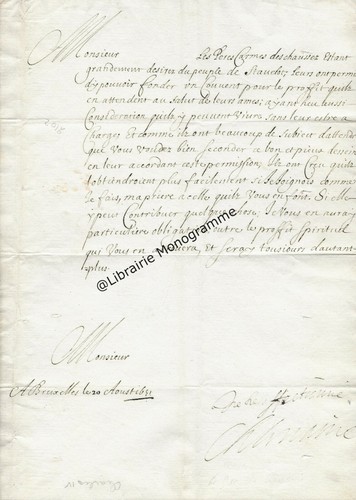 Monsieur
Les Peres Carmes deschaussez estant
grandement desirez du peuple de leurs ont permis
d'y pouvoir fonder un Couvent pour le profit quilz
en attendent au Salut de leurs ames; ayant heu aussi
Consideration quilz y peuvent vivre sans leur estre a
charges et commes ilz ont beaucoup de Subiect
que Vous vouldez bien seconder ce bon et pieux dessein
en leur accordant ceste permission; Ilz ont Creu quilz
l'obtiendroient plus facilement si Je Joignois comme
Je fais, ma priere a celle quilz Vous en font. Si elle
y peut Contribuer quelque chose, Je Vous en auray
particuliere obligation outre le proffit Spirituel
qui Vous en arrivera, Et Seray tousiours d'autant
plus
@Librairie Monogramme
Monsieur
A Bruxelles le 20 Aoust 1651
Charles IV